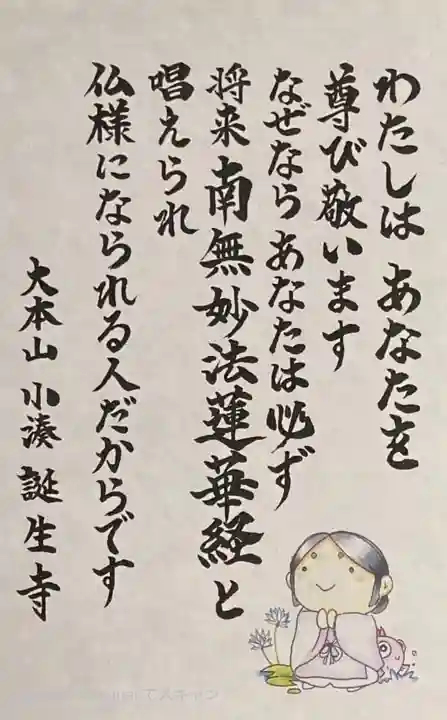 わたしは あなたを
尊び敬います
なぜなら あなたは必ず
将来 南無妙法蓮華経と
唱えられ
仏様になられる人だからです
大本山 小湊 誕生寺